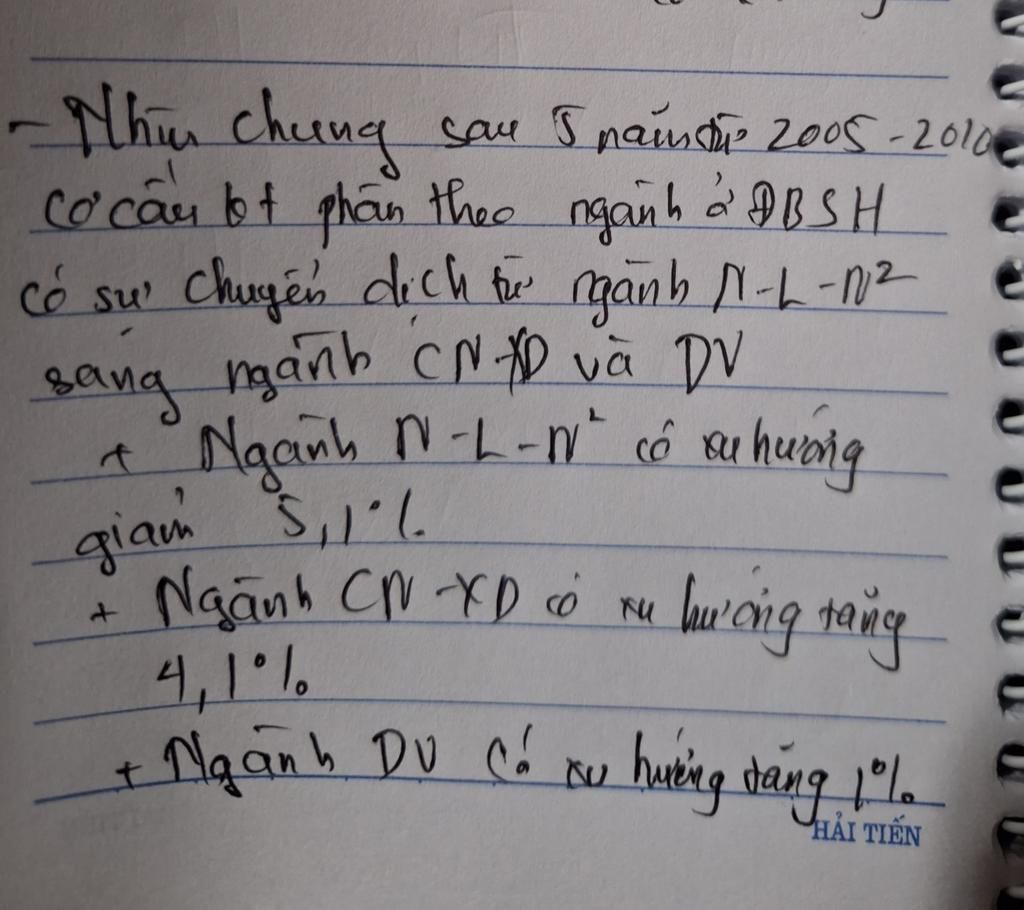 - Nhìn chung sau 5 năm từ 2005 - 2010
cơ cấu kt phân theo ngành ở ĐBSH
có sự chuyển dịch từ ngành N-L-N²
sang ngành CN-XD và DV
+ Ngành N-L-N² có xu hướng
giảm 5,1%
+ Ngành CN-XD có xu hướng tăng
4,1%
+ Ngành DV có xu hướng tăng 1%
HẢI TIẾN